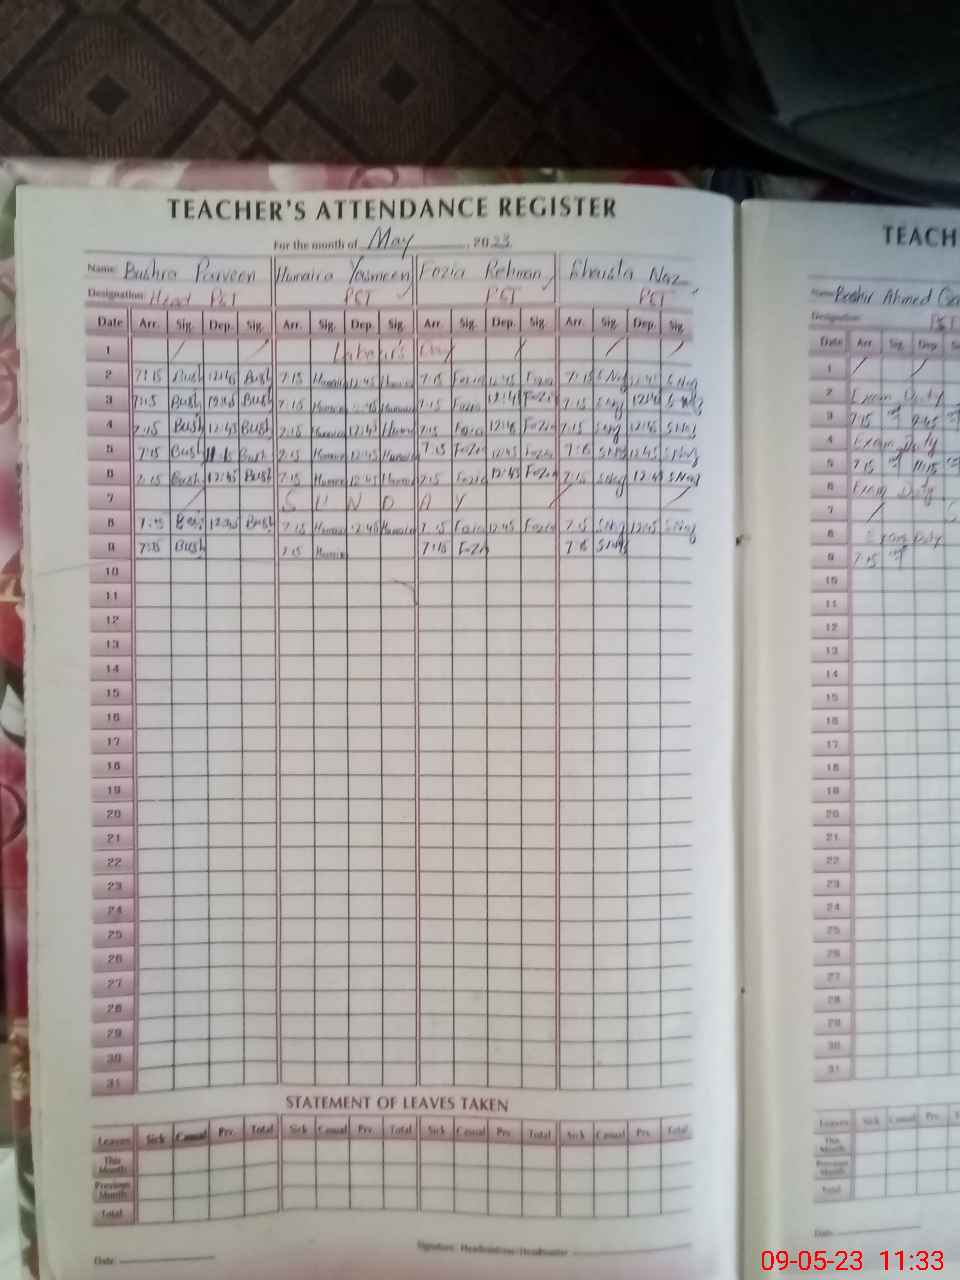 TEACHER'S ATTENDANCE REGISTER
For the month of May, 2023
Name: Bushra Parveen Humaira Yasmeen Fozia Rehman Shaista Naz
Designation: Head PST PST PST PST
Date Arr. Sig. Dep. Sig. Arr. Sig. Dep. Sig. Arr. Sig. Dep. Sig. Arr. Sig. Dep. Sig.
1 Labour's Day
2 7:15 Bush 12:45 Bush 7:15 Humaira 12:45 Humaira 7:15 Fozia 12:45 Fozia 7:15 S Naz 12:45 S Naz
3 7:15 Bush 12:45 Bush 7:15 Humaira 12:45 Humaira 7:15 Fozia 12:45 Fozia 7:15 S Naz 12:45 S Naz
4 7:15 Bush 12:45 Bush 7:15 Humaira 12:45 Humaira 7:15 Fozia 12:45 Fozia 7:15 S Naz 12:45 S Naz
5 7:15 Bush Bush 7:15 Humaira 12:45 Humaira 7:15 Fozia 12:45 Fozia 7:15 S Naz 12:45 S Naz
6 7:15 Bush 12:45 Bush 7:15 Humaira 12:45 Humaira 7:15 Fozia 12:45 Fozia 7:15 S Naz 12:45 S Naz
7 SUNDAY
8 7:15 Bush 12:45 Bush 7:15 Humaira 12:45 Humaira 7:15 Fozia 12:45 Fozia 7:15 S Naz 12:45 S Naz
9 7:15 Bush 7:15 Humaira 7:15 Fozi 7:15 S Naz
10
11
12
13
14
15
16
17
18
19
20
21
22
23
24
25
26
27
28
29
30
31
STATEMENT OF LEAVES TAKEN
Leaves Sick Casual Prv. Total Sick Casual Prv. Total Sick Casual Prv. Total Sick Casual Prv. Total
This Month
Previous Month
Total
Date:
Signature: Headmistress/Headmaster
TEACH
Name: Bashir Ahmed
Designation:
Date Arr. Sig. Dep. S
1
2 Exam Duty
3 7:15 9:45
4 Exam Duty
5 7:15 11:15
6 Exam Duty
7
8 Exam Duty
9 7:15
10
11
12
13
14
15
16
17
18
19
20
21
22
23
24
25
26
27
28
29
30
31
Leaves Sick Casual Prv.
This Month
Previous Month
Total
Date:
09-05-23 11:33